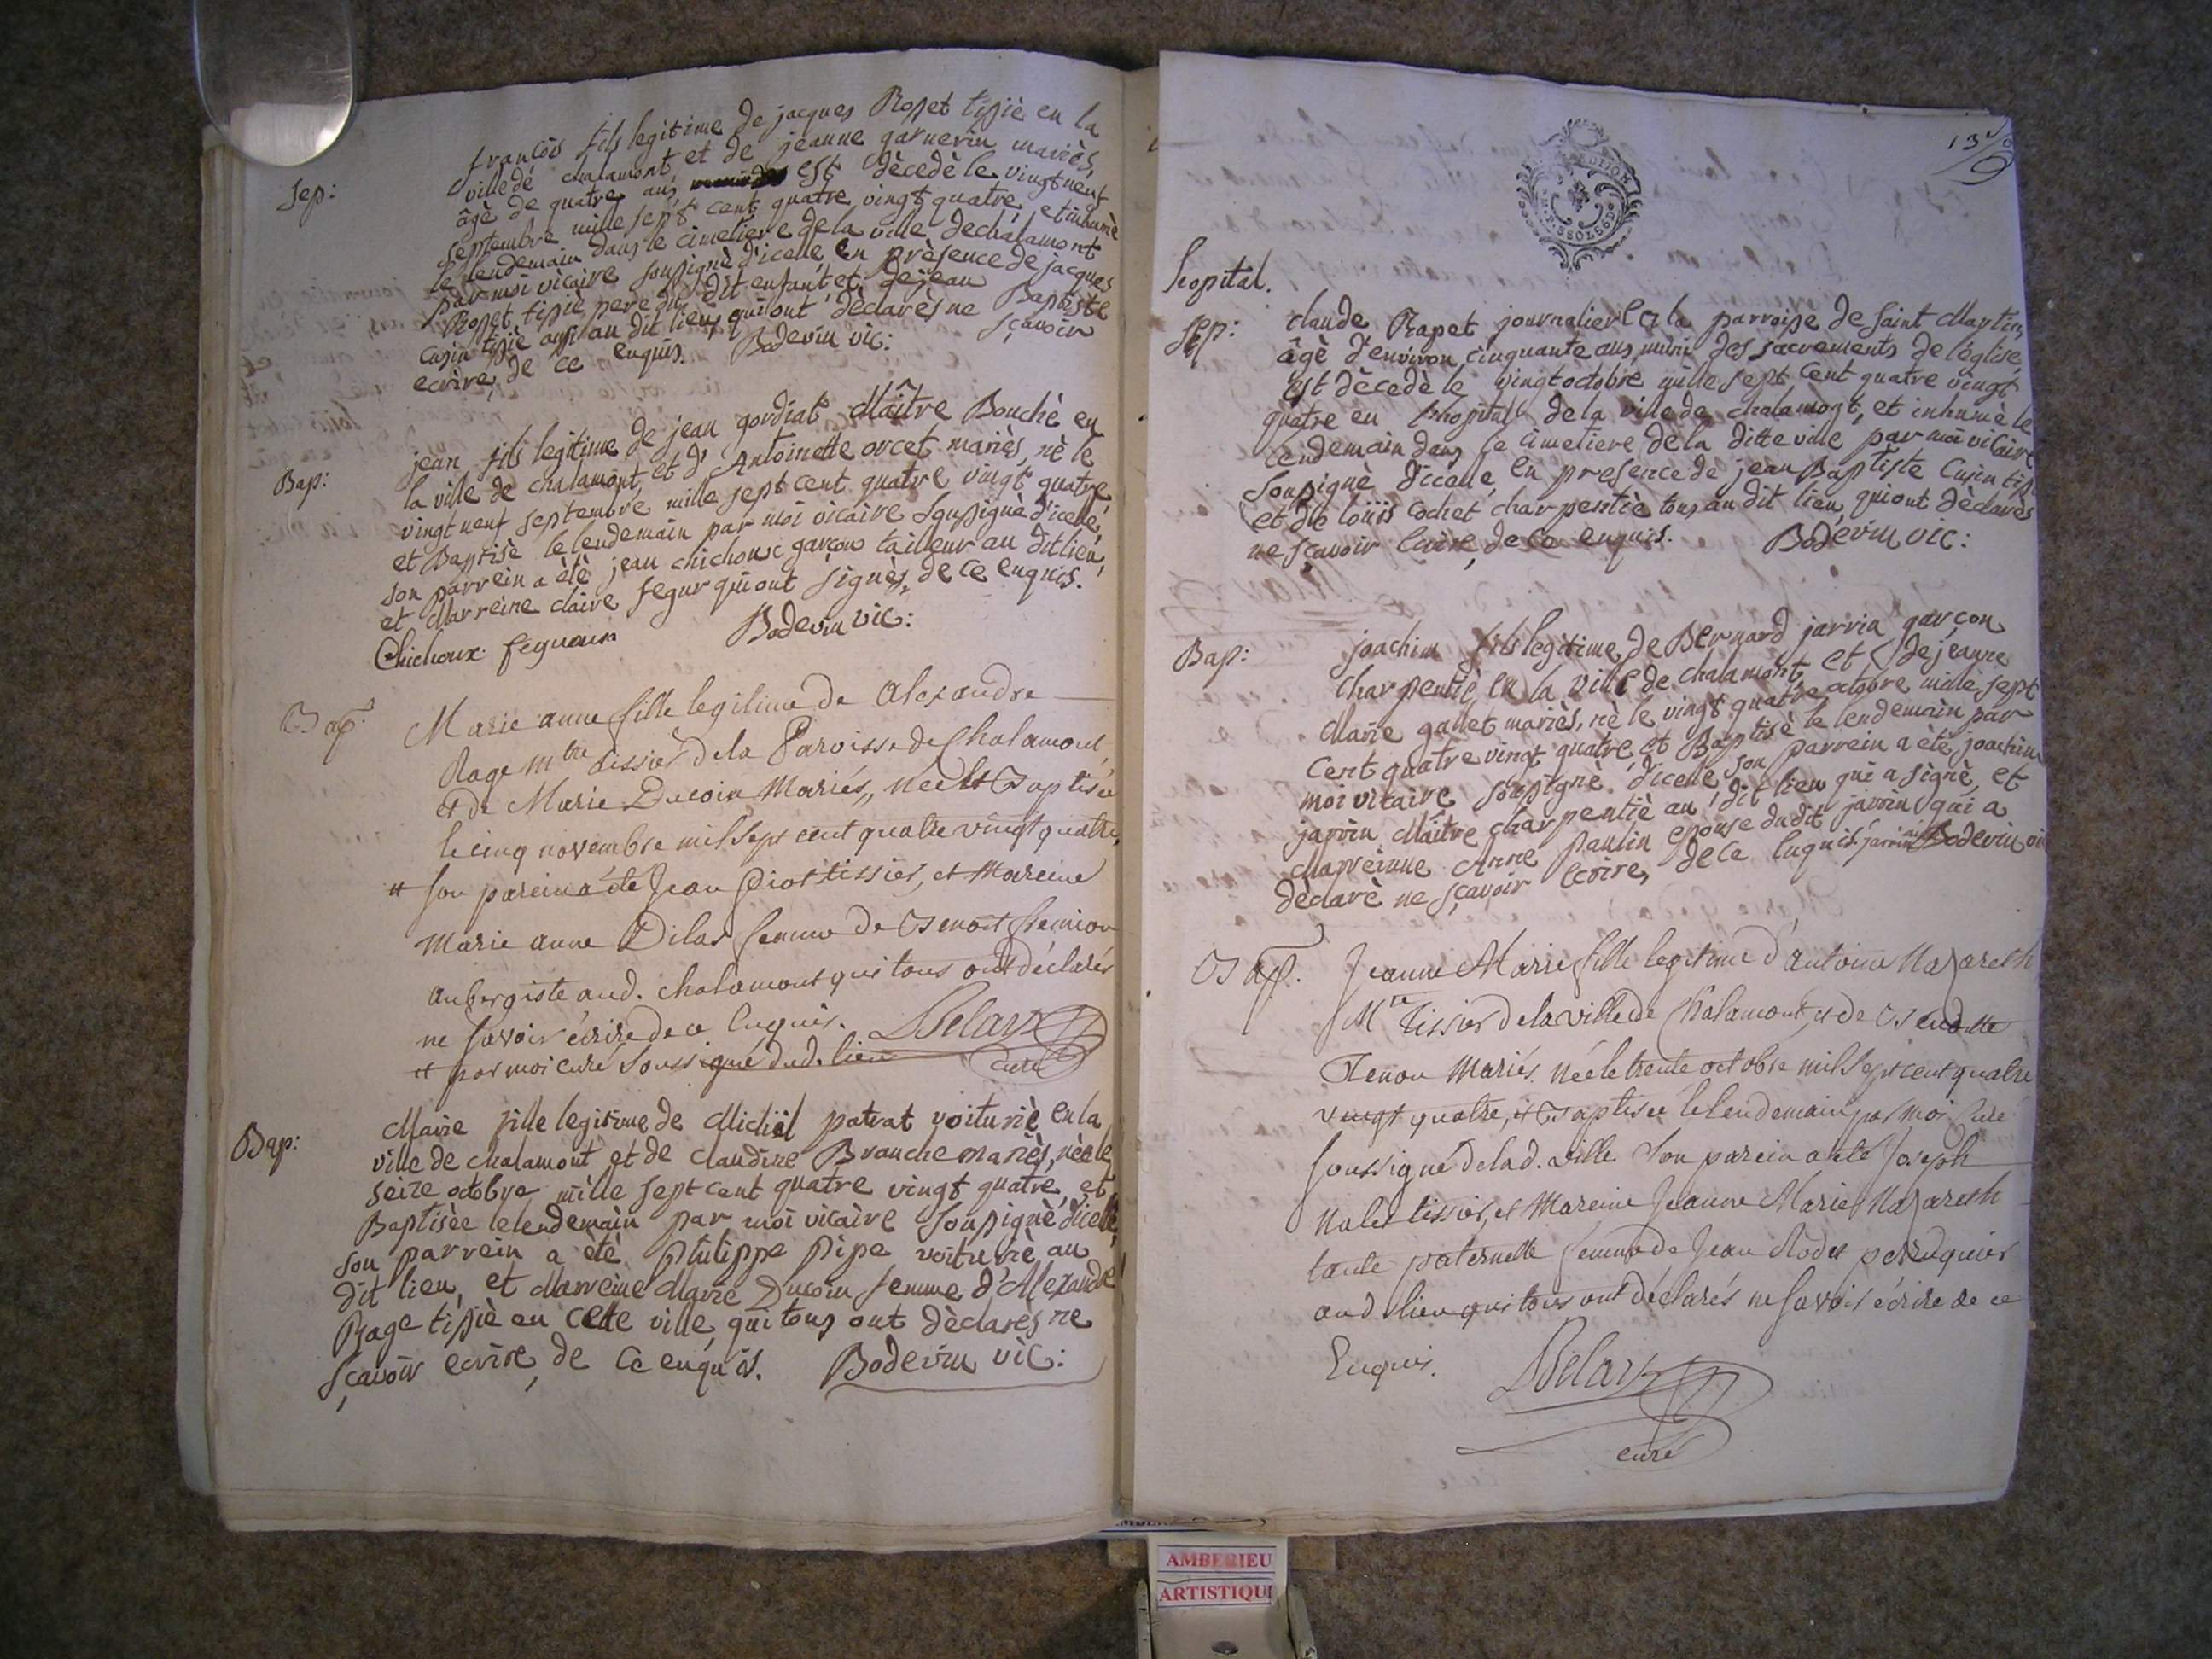 Sep:
françois fils legitime de jacques Rosset tissiè en la
ville de chalamont, et de jeanne garnerin mariès,
âgè de quatre ans, est dècedè le vingt neuf
septembre mille sept cent quatre vingt quatre, et inhumè
le lendemain dans le cimetiere de la ville de chalamont
par moi vicaire soussignè d'icelle, en prèsence de jacques
Rosset tissiè pere du dit enfant et de jean Baptiste
Cusin tissiè aussi au dit lieu, qui ont dèclarès ne sçavoir
ecrire, de ce enquis. Bodevin vic:
Bap:
jean fils legitime de jean gordiat Maître Bouchè en
la ville de chalamont, et d'Antoinette orcet mariès, nè le
vingt neuf septembre mille sept cent quatre vingt quatre,
et Baptisè le lendemain par moi vicaire soussignè d'icelle,
son parrein a ètè jean chichoux garçon tailleur au dit lieu,
et Marreine claire segur qui ont signès, de ce enquis.
Chichoux Bodevin vic:
Bap.
Marie anne fille legitime de Alexandre
Rage mtre tissier de la Paroisse de Chalamont,
et de Marie Ducoin Mariés, née et Baptisée
le cinq novembre mil sept cent quatre vingt quatre,
# son parein a été Jean tissier, et Mareine
Marie anne Dilas femme de Benoit
aubergiste aud. Chalamont qui tous ont déclarés
ne savoir écrire de ce Enquis. Delar
# par moi curé soussigné dud. lieu curé
Bap:
Marie fille legitime de Michel patrat voituriè en la
ville de chalamont et de claudine Branche mariès, nèe le
seize octobre mille sept cent quatre vingt quatre, et
Baptisèe le lendemain par moi vicaire soussignè d'icelle,
son parrein a ètè philippe pipe voituriè au
dit lieu, et Marreine Marie Ducoin femme d'Alexandre
Rage tissiè en cette ville, qui tous ont dèclarès ne
sçavoir ecrire, de ce enquis. Bodevin vic:
13
9
hopital.
Sep:
claude Rapet journalier en la parroisse de saint Martin,
âgè d'environ cinquante ans, muni des sacrements de l'èglise,
est dècedè le vingt octobre mille sept cent quatre vingt
quatre en l'hopital de la ville de chalamont, et inhumè le
lendemain dans le cimetiere de la ditte ville par moi vicaire
soussignè d'icelle, en presence de jean Baptiste Cusin
et de loüis Cochet charpentiè tous au dit lieu, qui ont dèclarès
ne sçavoir Ecrire, de ce enquis. Bodevin vic:
Bap:
joachim fils legitime de Bernard jarrin garçon
charpentiè en la ville de chalamont, et de jeanne
Marie gallet mariès, nè le vingt quatre octobre mille sept
cent quatre vingt quatre, et Baptisè le lendemain par
moi vicaire soussignè d'icelle son parrein a ètè joachim
jarrin Maître charpentiè au dit lieu qui a signè, et
Marreinne Anne paulin epouse du dit jarrin qui a
dèclarè ne sçavoir Ecrire, de ce Enquis. jarrin Bodevin vic
Bap.
Jeanne Marie fille legitime d'antoine Nazareth
Mre Tissier de la ville de Chalamont, et de Benoitte
Tenon Mariés, née le trente octobre mil sept cent quatre
vingt quatre, et Baptisée le lendemain par moi Curé
soussigné de lad. ville. Son parein a été Joseph
tissier, et Mareine Jeanne Marie Nazareth
tante paternelle femme de Jean Rodet perruquier
aud. lieu qui tous ont déclarés ne savoir écrire de ce
Enquis. Delar
curé
AMBERIEU
ARTISTIQU